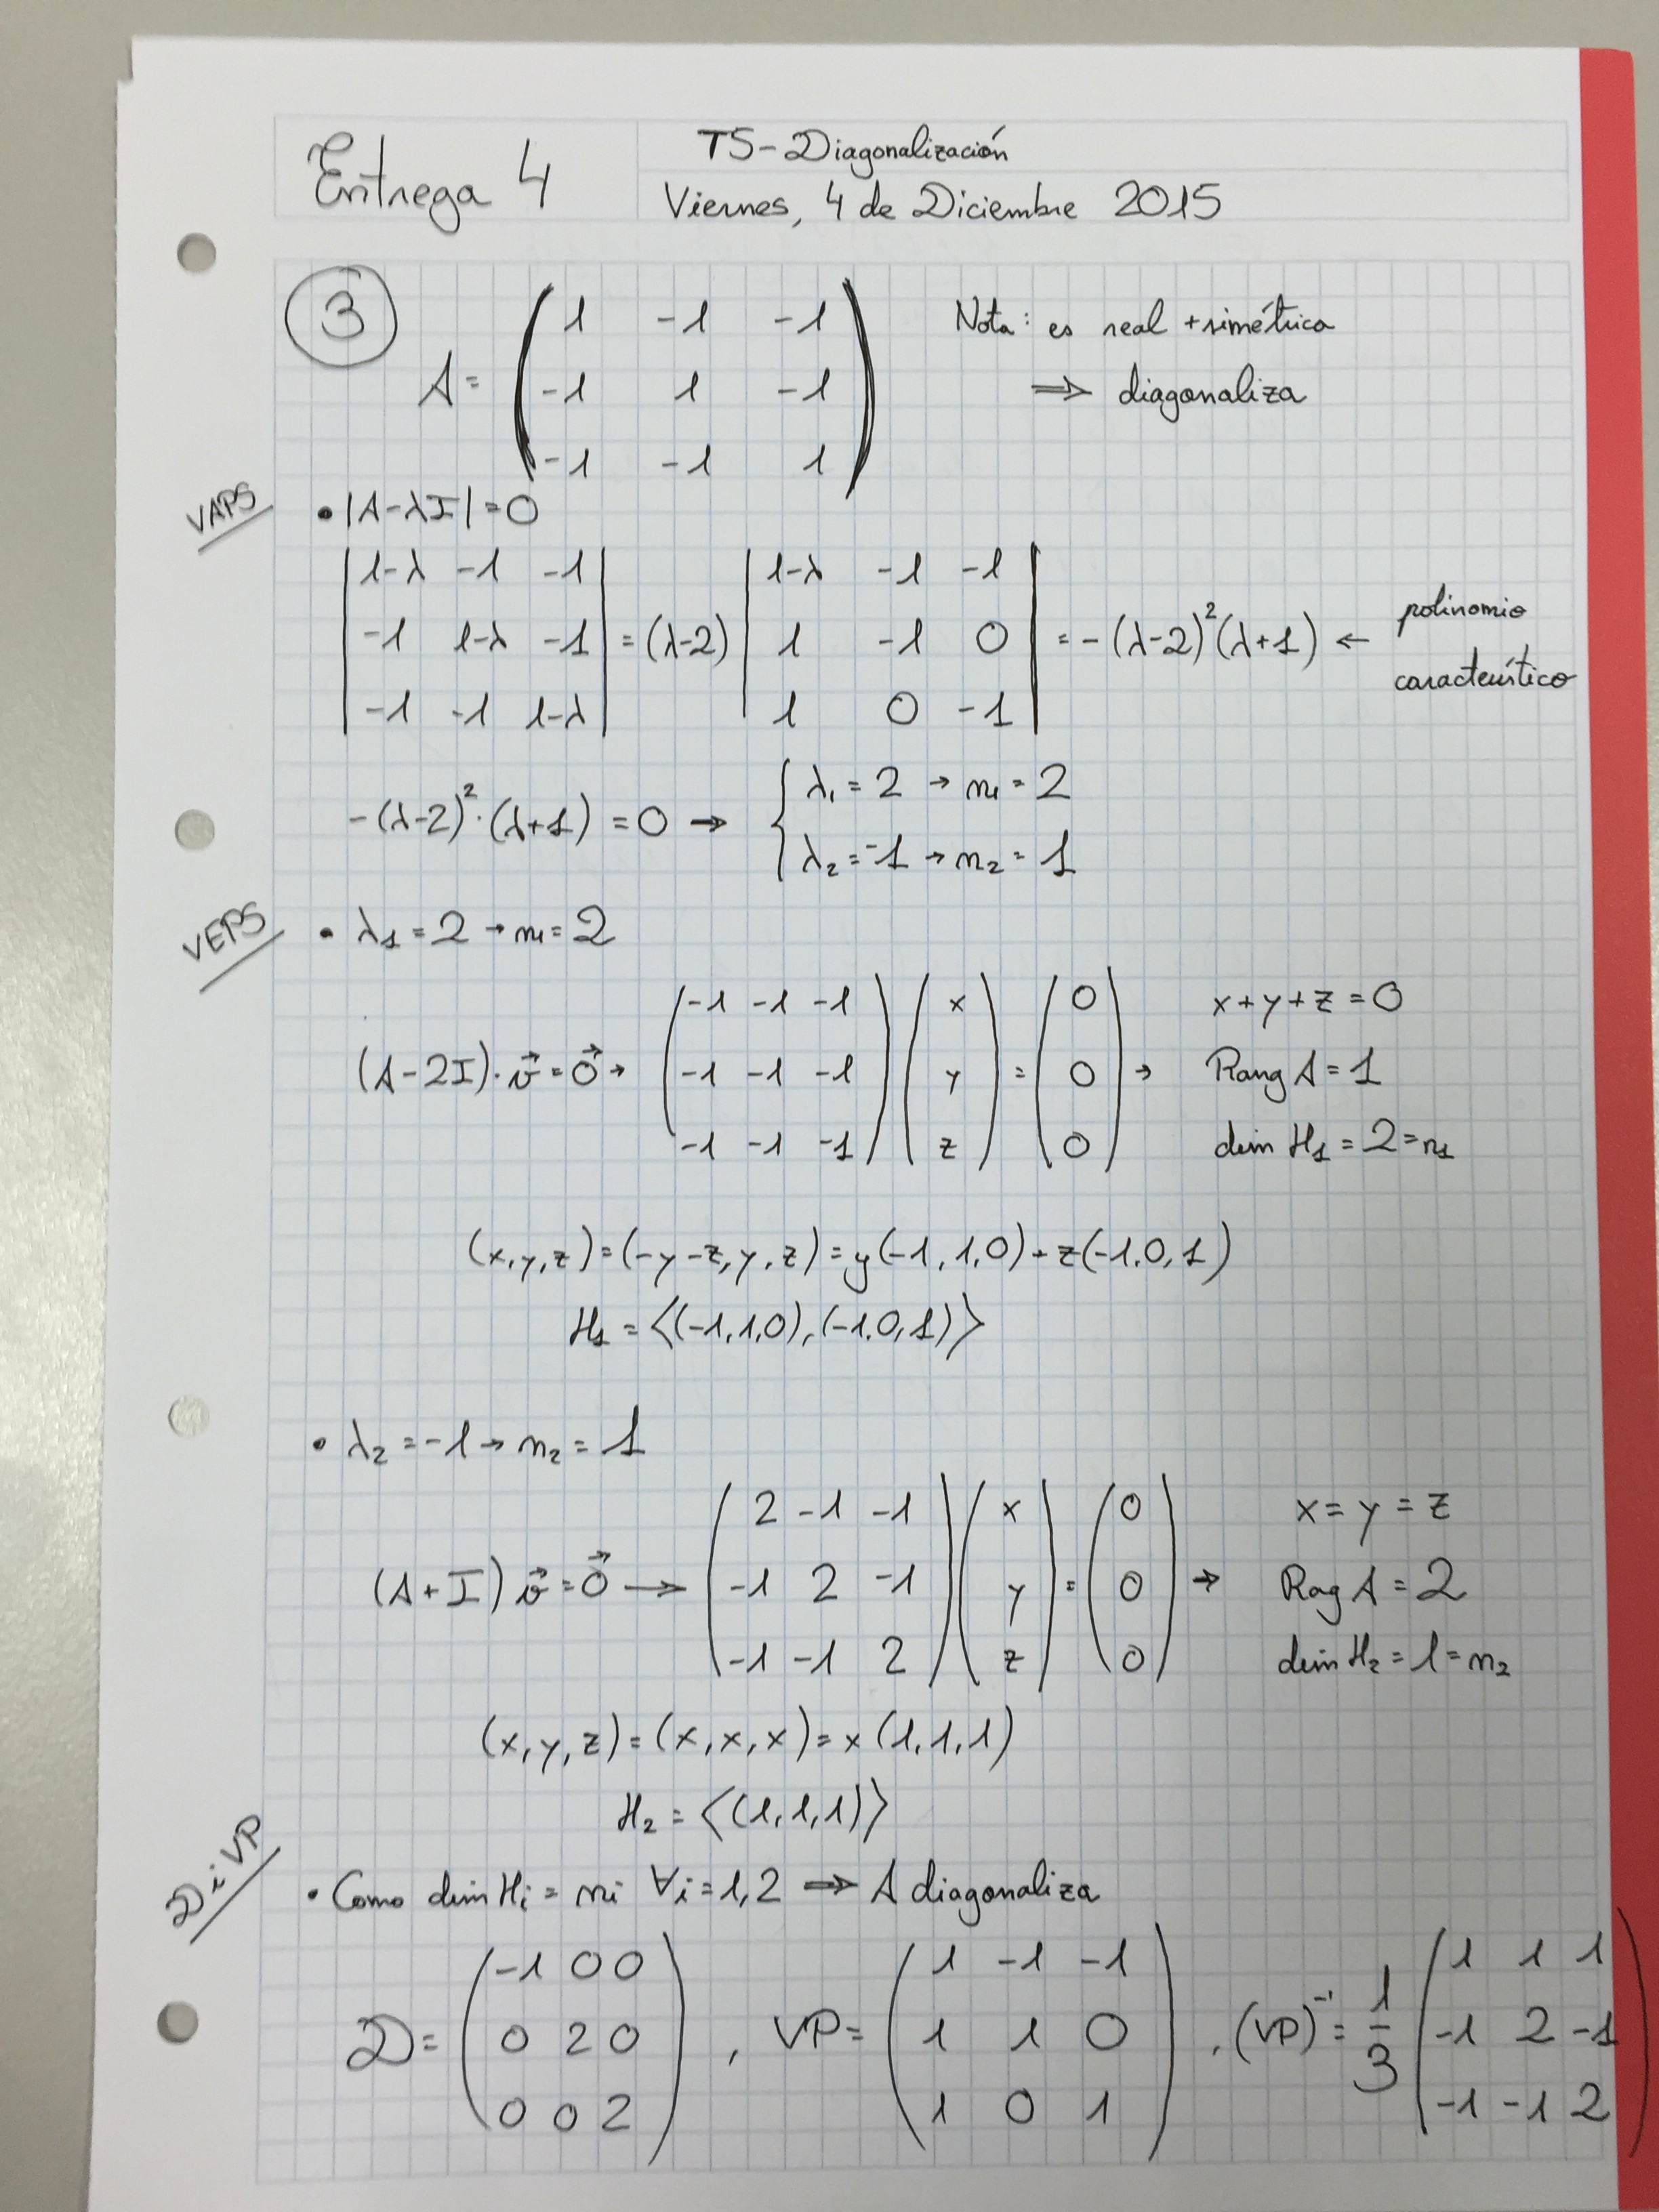 Entrega 4
T5-Diagonalización
Viernes, 4 de Diciembre 2015
3
A= ( 1 -1 -1
-1 1 -1
-1 -1 1 )
Nota: es real + simétrica
⇒ diagonaliza
VAPS
• |A-λI|=0
| 1-λ -1 -1 |
| -1 1-λ -1 | = (λ-2) | 1-λ -1 -1 |
| -1 -1 1-λ |
| 1 -1 0 | = -(λ-2)²(λ+1) ← polinomio
| 1 0 -1 |
característico
-(λ-2)²·(λ+1) = 0 → { λ₁ = 2 → n₁ = 2
λ₂ = -1 → n₂ = 1
VEPS
• λ₁ = 2 → n₁ = 2
(A-2I)·v⃗ = 0⃗ → ( -1 -1 -1
-1 -1 -1
-1 -1 -1 ) ( x
y
z ) = ( 0
0
0 ) →
x+y+z=0
Rang A = 1
dim H₁ = 2 = n₁
(x,y,z)=(-y-z,y,z)=y(-1,1,0)+z(-1,0,1)
H₁ = ⟨(-1,1,0),(-1,0,1)⟩
• λ₂ = -1 → n₂ = 1
(A+I) v⃗ = 0⃗ → ( 2 -1 -1
-1 2 -1
-1 -1 2 ) ( x
y
z ) = ( 0
0
0 ) →
x = y = z
Rag A = 2
dim H₂ = 1 = n₂
(x,y,z)=(x,x,x)=x(1,1,1)
H₂ = ⟨(1,1,1)⟩
D i VP
• Como dim Hi = ni ∀i=1,2 ⇒ A diagonaliza
D= ( -1 0 0
0 2 0
0 0 2 )
, VP= ( 1 -1 -1
1 1 0
1 0 1 )
, (VP)⁻¹ = 1/3 ( 1 1 1
-1 2 -1
-1 -1 2 )